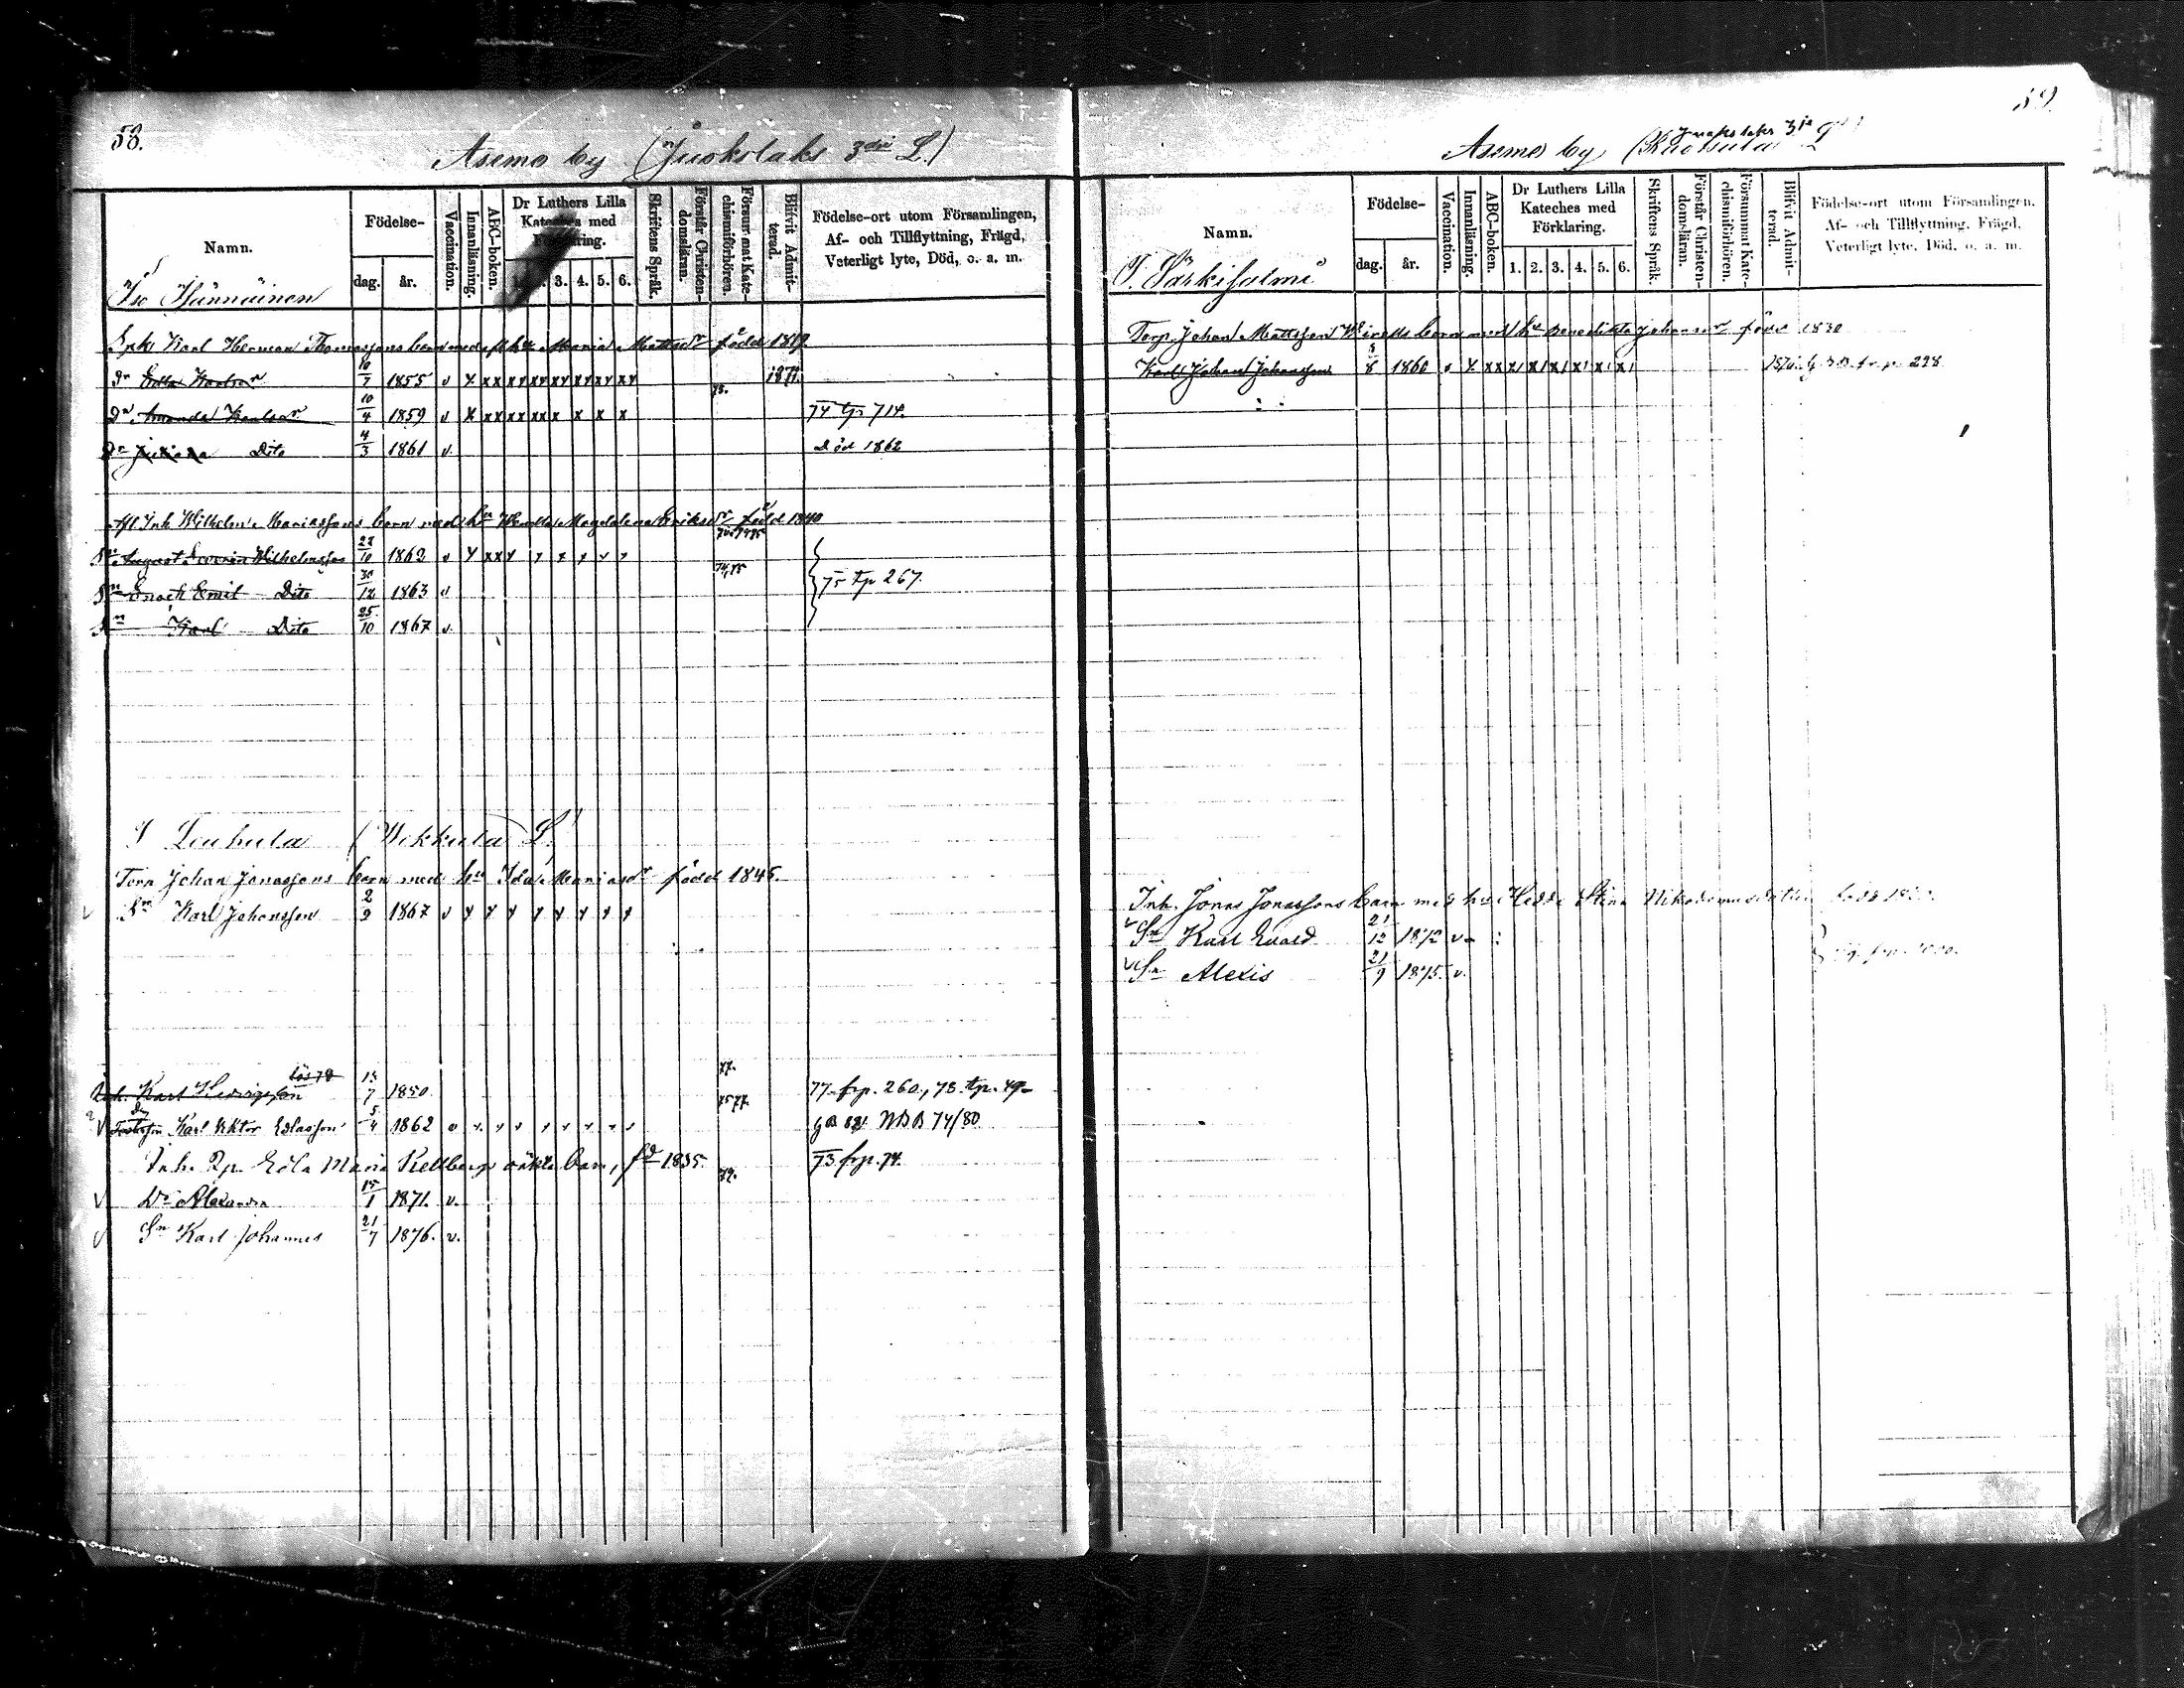 58.
Asemo by (Juokslaks 3die L.)
Namn.
Födelse-
dag. år.
Vaccination.
Innanläsning.
ABC-boken.
Dr Luthers Lilla Kateches med Förklaring.
3. 4. 5. 6.
Skriftens Språk.
Förstår Christendomsläran.
Försummat Katechismiförhören.
Blifvit Admitterad.
Födelse-ort utom Församlingen, Af- och Tillflyttning, Frägd, Veterligt lyte, Död, o. a. m.
Iso Hännäinen
Spk Karl Herman Thomassons barn med hu Maria Mattsdr född 1819.
Dr Karlsdr 10/7 1855 v x xx xx xx xx xx xx xx 73. 1871.
Dr Amanda Karlsdr 10/4 1859 v x xx xx xx x x x x 74 tp 714.
Dr Dito 4/3 1861 v. Död 1862
Inh Wilhelm Mariassons barn med hu Magdalena Eriksdr född 1840
Sn August Wilhelmsson 28/10 1862 v x xx x x x x x x
Sn Enoch Emil Dito 30/12 1863 v 74,75 75 tp 267.
Sn Karl Dito 25/10 1867 v.
T Leuhula (Wekkula) L.
Torp Johan Jonassons barn med hu Ida Mariasdr född 1845.
Sn Karl Johansson 2/9 1867 v x x x x x x x x
77.
Inh. Karl Hedvigsson 13/7 1850. 77 frp. 260., 78. tp. 49
v Karl Viktor Edlasson 5/4 1862 75 77. NBB 74/80
Inh. Qp. Edla Maria Kellberg oäkta barn, fd 1835. 73 frp. 74.
v Dr Alexandra 15/1 1871. v.
v Sn Karl Johannes 21/7 1876. v.
59.
Asemo by (Juokslaks 3je L)
Namn.
Födelse-
dag. år.
Vaccination.
Innanläsning.
ABC-boken.
Dr Luthers Lilla Kateches med Förklaring.
1. 2. 3. 4. 5. 6.
Skriftens Språk.
Förstår Christendomsläran.
Försummat Katechismiförhören.
Blifvit Admitterad.
Födelse-ort utom Församlingen, Af- och Tillflyttning, Frägd, Veterligt lyte, Död, o. a. m.
T. Särkisalmi
Torp. Johan Mattsson barn med hu Benedikta Johansdr född 1830
Karl Johan Johansson 1860 298
Inh. Jonas Jonassons barn med hu Hedda Stina Nikodemusdotter
v Sn Karl Evald 21/12 1872 v
v Sn Alexis 21/9 1875. v.